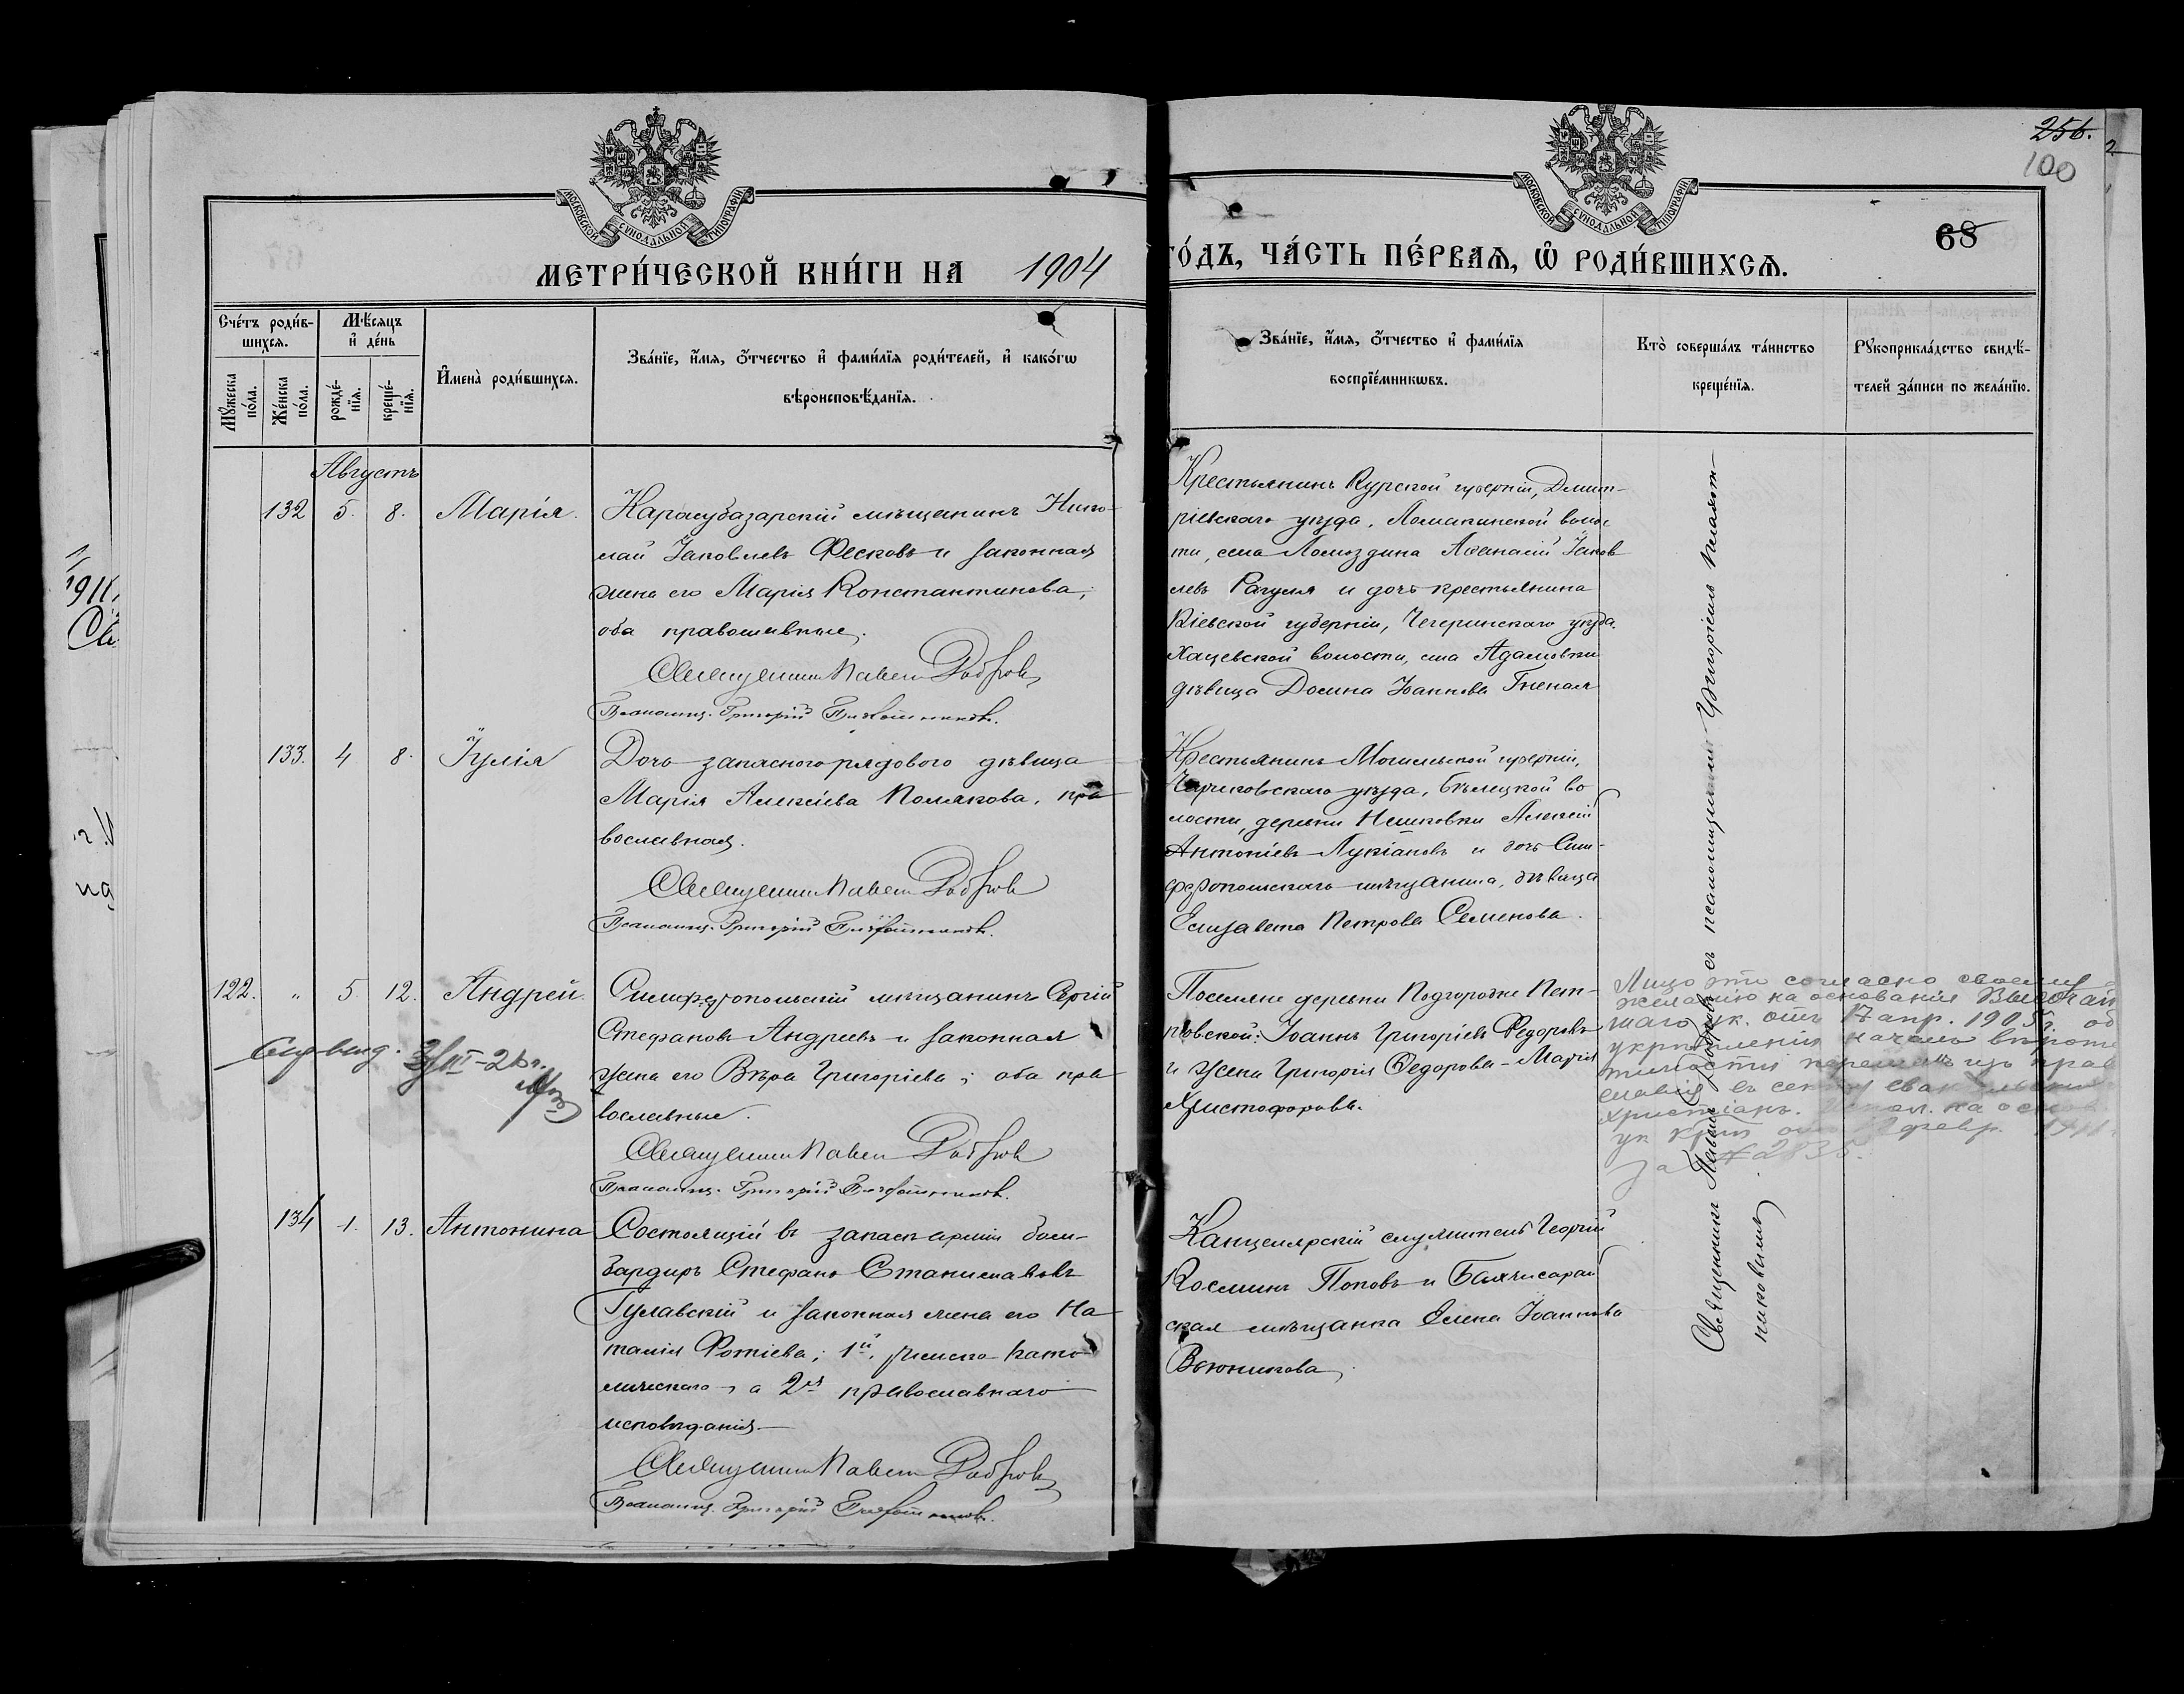 256.
100
68
МОСКОВСКОЙ СѴНОДАЛЬНОЙ ТИПОГРАФІИ
МОСКОВСКОЙ СѴНОДАЛЬНОЙ ТИПОГРАФІИ
МЕТРИ́ЧЕСКОЙ КНИ́ГИ НА 1904
ГО́ДЪ, ЧА́СТЬ ПЕ́РВАѦ, Ѡ҆ РОДИ́ВШИХСѦ.
Сче́тъ роди́в-
шихсѧ.
Мꙋ́жеска по́ла.
Же́нска по́ла.
Мѣ́сѧцъ и҆ де́нь
рожде́-
нїѧ.
креще́-
нїѧ.
И҆мена̀ роди́вшихсѧ.
Зва́нїе, и҆́мѧ, ѻ҆́тчество и҆ фами́лїѧ роди́телей, и҆ како́гѡ
вѣроисповѣ́данїѧ.
Зва́нїе, и҆́мѧ, ѻ҆́тчество и҆ фами́лїѧ
воспрїе́мникѡвъ.
Кто̀ соверша́лъ та́инство
креще́нїѧ.
Рꙋкоприкла́дство свидѣ́-
телей за́писи по жела́нїю.
Августъ
132 5. 8. Марія.
Карасубазарскій мѣщанинъ Нико-
лай Іаковлевъ Фесковъ и законная
жена его Марія Константинова;
оба православные.
Священникъ Павелъ
Псаломщ. Григорій
Крестьянинъ Курской губерніи, Дмит-
ріевскаго уѣзда, волос
ти, села Аѳанасій Іаков
левъ Рагуля и дочь крестьянина
Кіевской губерніи, Чегеринскаго уѣзда
волости, села Адамовки
дѣвица Домна Іоаннова
133. 4 8. Іулія
Дочь запасного рядового дѣвица
Марія Алексѣева Полякова, пра
вославная.
Священникъ Павелъ
Псаломщ. Григорій
Крестьянинъ Могилевской губерніи,
Чериковскаго уѣзда, Бѣлицкой во
лости, деревни Алексій
Антоніевъ Лукіановъ и дочь Сим-
феропольскаго мѣщанина, дѣвица
Елизавета Петрова Семенова.
122. " 5 12. Андрей.
Симферопольскій мѣщанинъ Сергій
Стефановъ Андреевъ и законная
жена его Вѣра Григоріева; оба пра
вославные.
Священникъ Павелъ
Псаломщ. Григорій
III-26 г.
Поселяне деревни Подгородне Пет-
ровской: Іоаннъ Григоріевъ Федоровъ
и жена Григорія Ѳедорова - Марія
Христофорова.
Лицо это согласно своему
желанію на основаніи Высочай
шаго ук. отъ 17 апр. 1905 г. об
укрѣпленіи началъ вѣроте
рпимости перешелъ изъ прав
славія въ секту евангельскихъ
христіанъ. на основ.
ук отъ февр. 1911
за №
134 1. 13. Антонина
Состоящій въ запасѣ арміи бом-
бардиръ Стефанъ Станиславовъ
Гулавскій и законная жена его На
талія Фотіева; 1й, римско-като
лическаго, а 2я православнаго
исповѣданія
Священникъ Павелъ
Псаломщ. Григорій
Канцелярскій служитель Георгій
Косминъ Поповъ и Бахчисарай
ская мѣщанка Елена Іоаннова
Вьюникова.
Священникъ Павелъ съ псаломщикомъ Григоріемъ
никовымъ